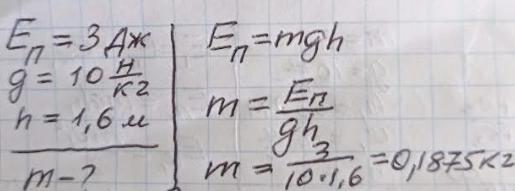 Eп = 3 Дж
g = 10 Н/кг
h = 1,6 м
m - ?
Eп = mgh
m = Eп/gh
m = 3/10·1,6 = 0,1875 кг